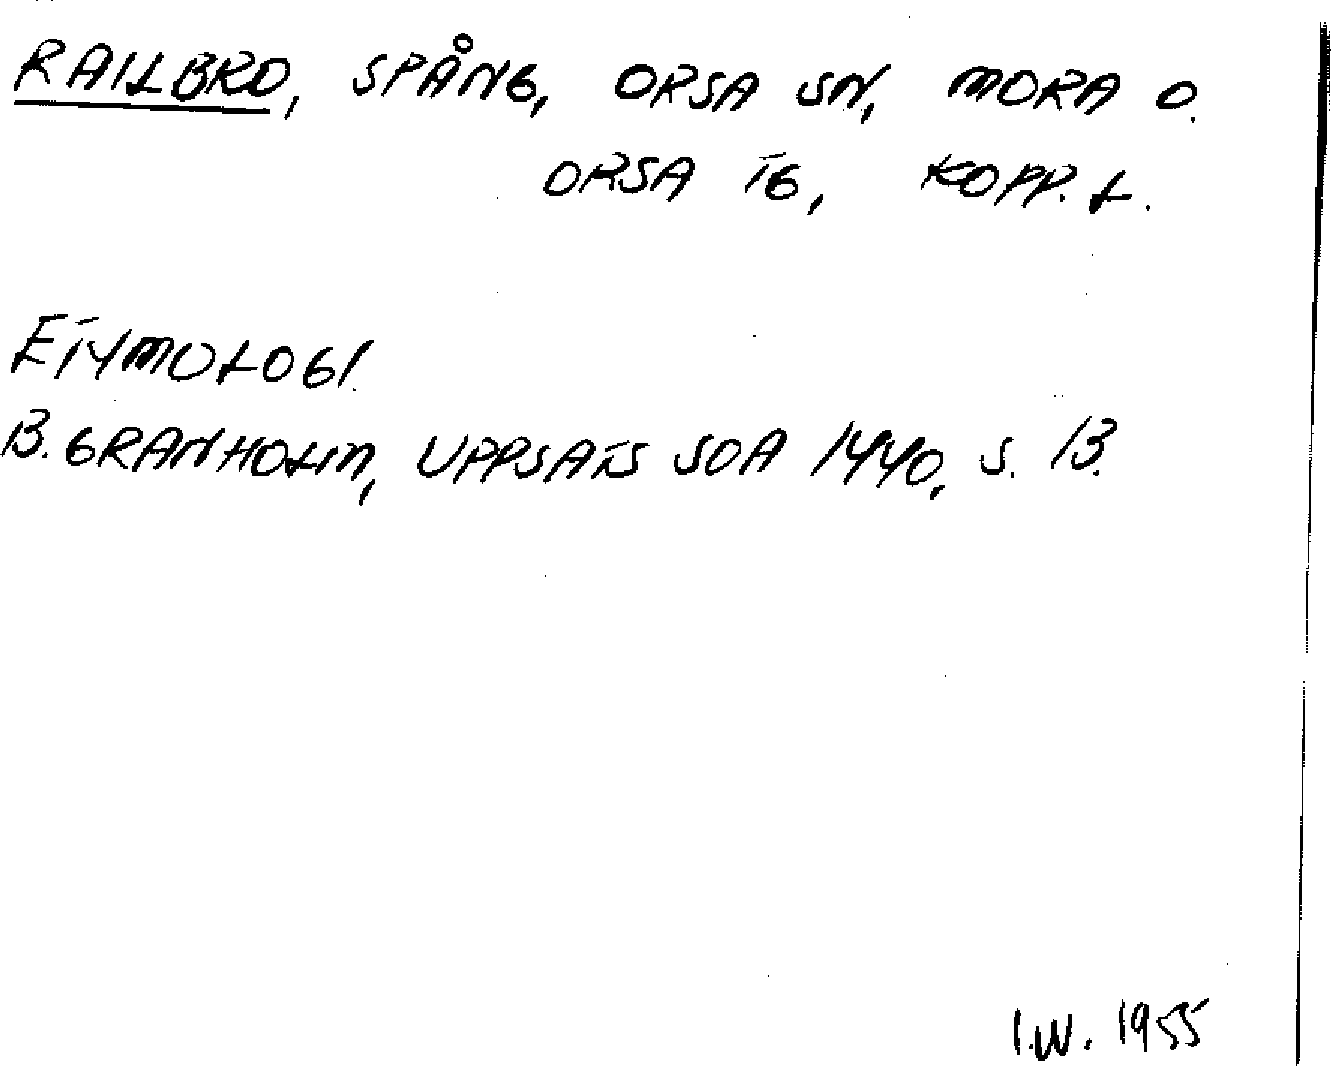 RAILBRO, SPÅNG, ORSA SN, MORA O.
ORSA TG, KOPP. L.
ETYMOLOGI.
B. GRANHOLM, UPPSATS SOA 1940, S. 13.
I.W. 1955